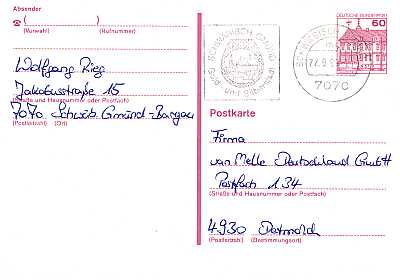 Absender
(Vorwahl) (Rufnummer)
Wolfgang Rieg
Jakobusstraße 15
(Straße und Hausnummer oder Postfach)
7070 Schwäb. Gmünd-Bargau
(Postleitzahl) (Ort)
SCHWÄBISCH GMÜND
Gold und Silber
SCHWÄBISCH
7070
DEUTSCHE BUNDESPOST
60
Postkarte
Firma
van Melle Deutschland GmbH
Postfach 134
(Straße und Hausnummer oder Postfach)
4930 Detmold
(Postleitzahl) (Bestimmungsort)